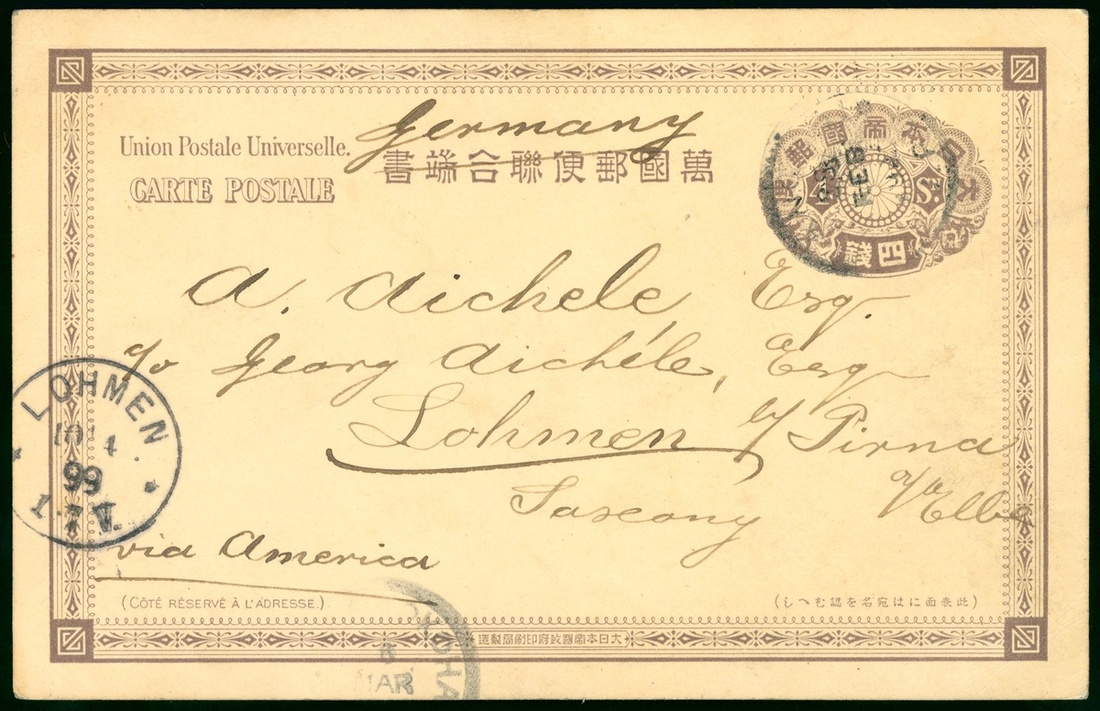 Germany
Union Postale Universelle.
CARTE POSTALE
書端合聯便郵國萬
四錢
FEB
A. Aichele Esq.
c/o Georg Aichéle, Esq
Lohmen
Lohmen / Pirna
99
1-7 V.
Saxony
a/Elbe
via America
(CÔTÉ RÉSERVÉ À L'ADRESSE.)
(此表面には宛名を認むへし)
造製局刷印府政國帝本日大
MAR